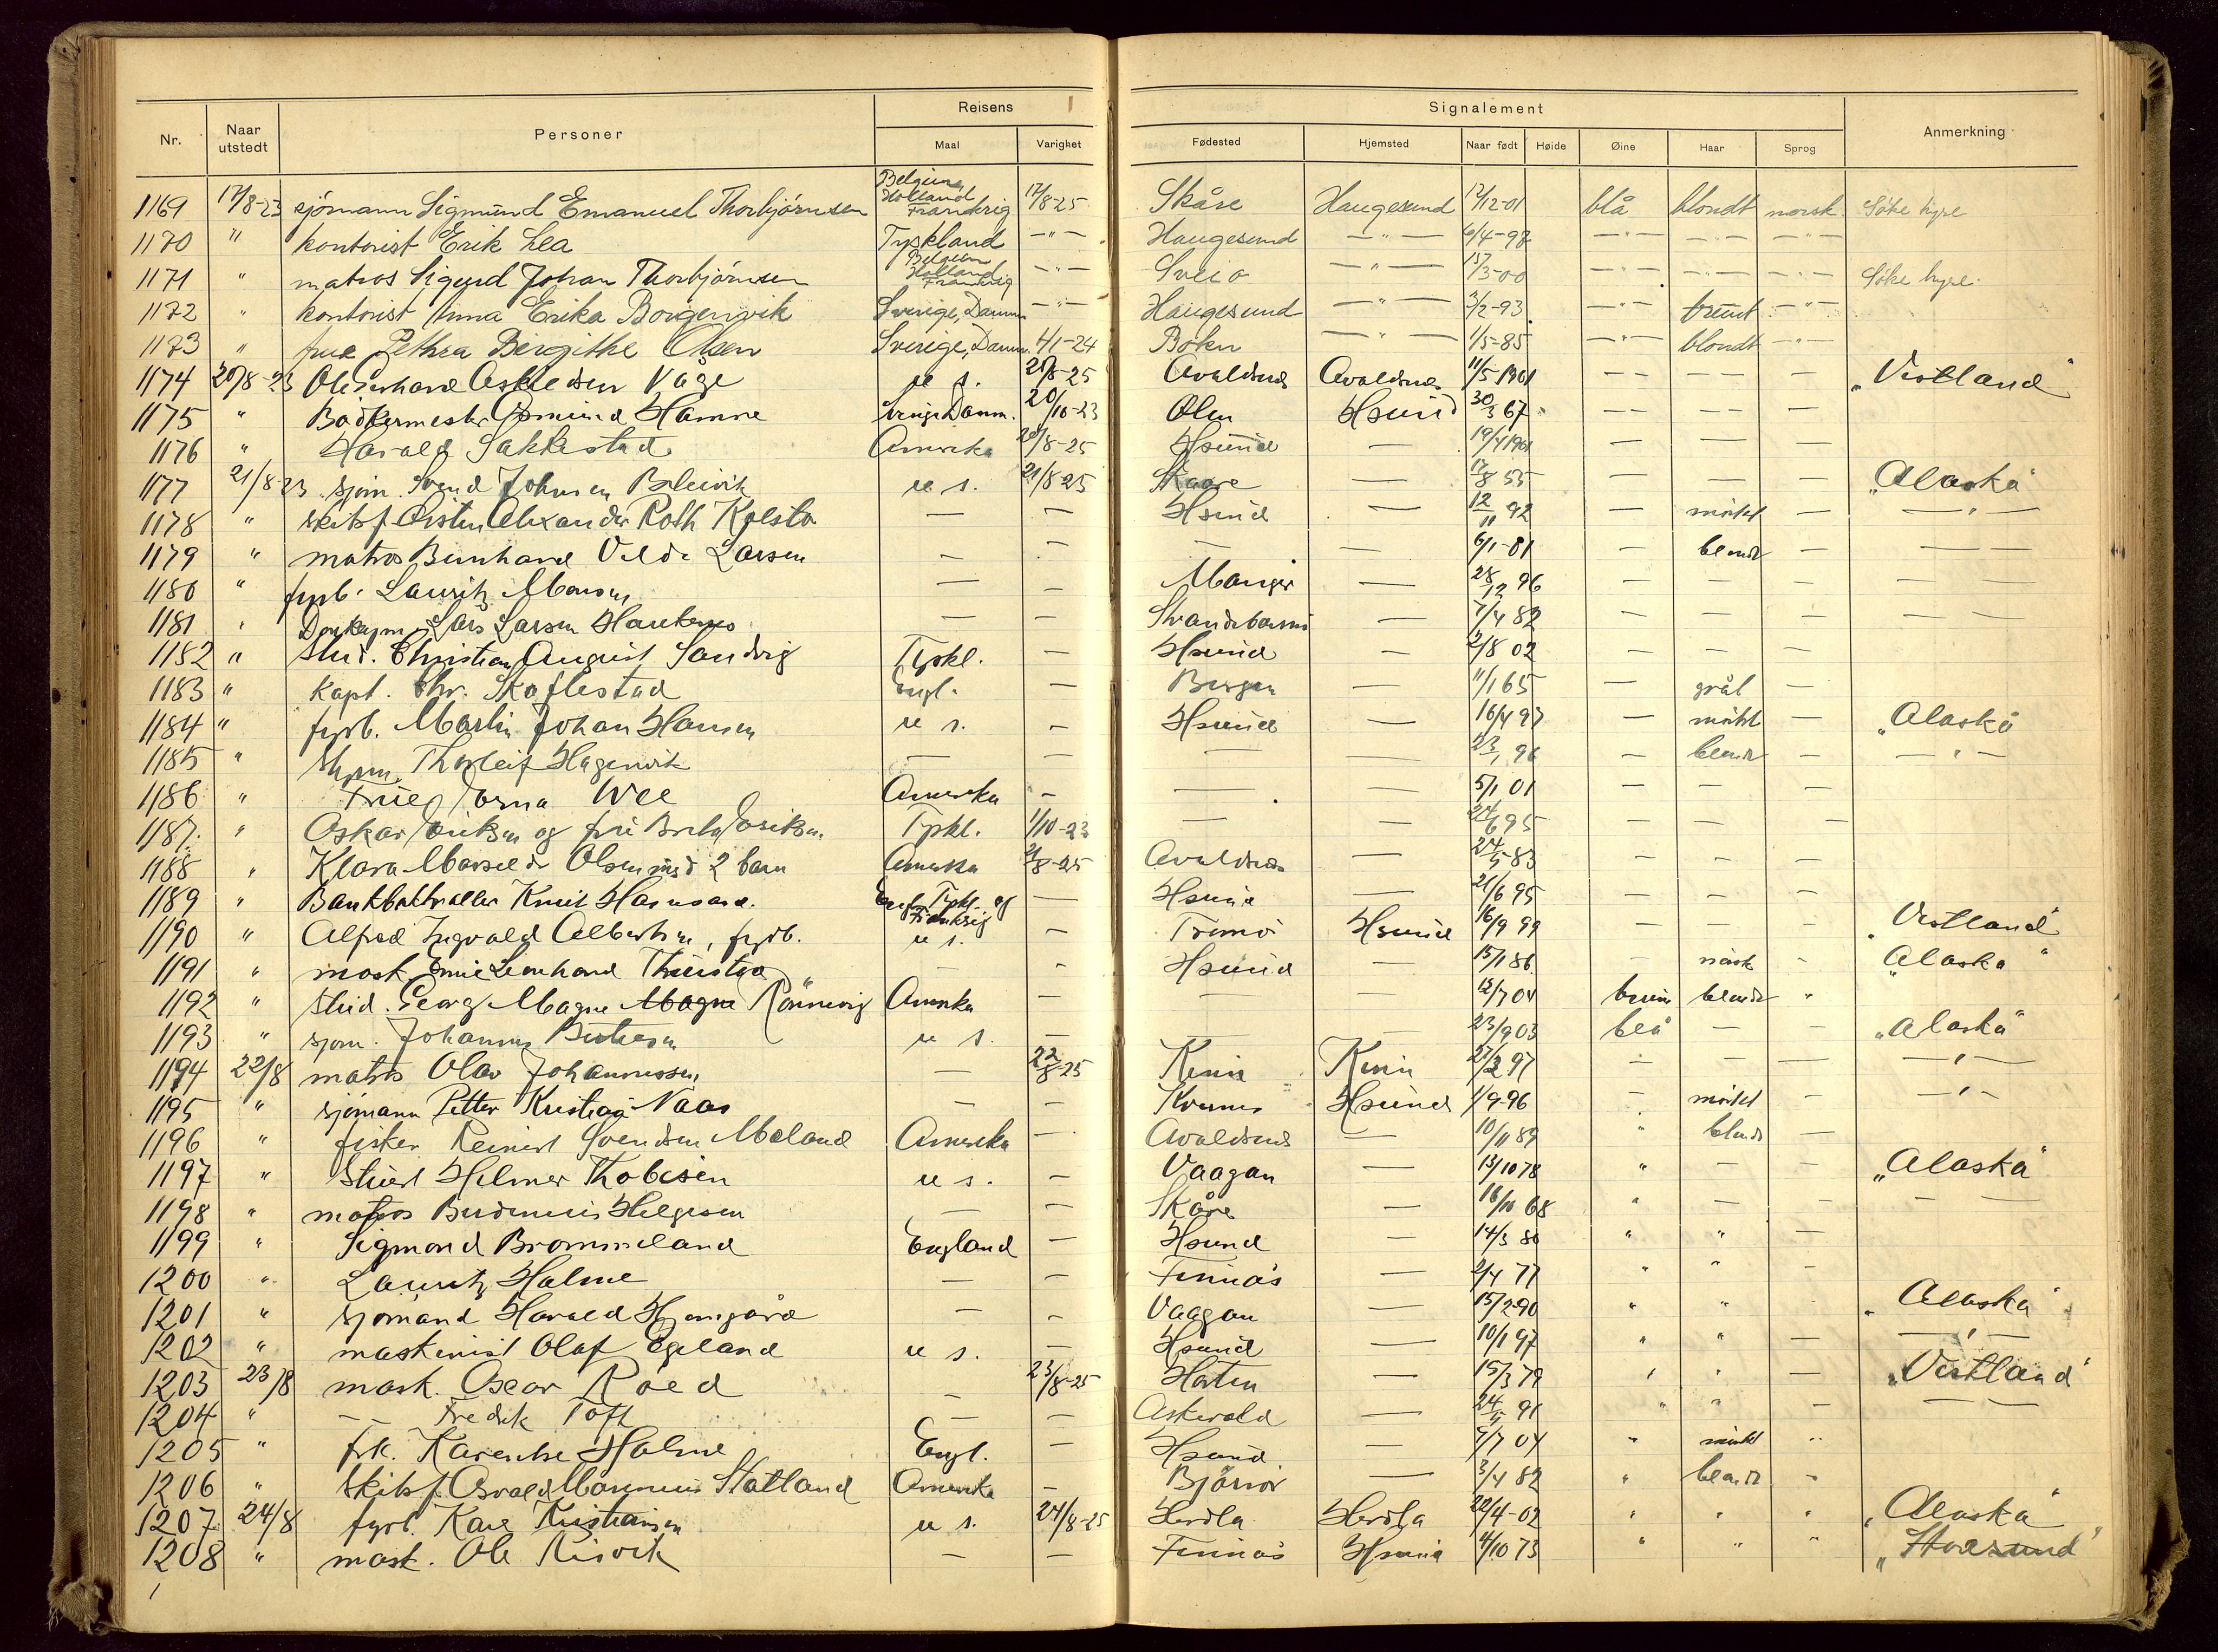 Reisens Signalement
Nr. Naar utstedt Personer Maal Varighet Fødested Hjemsted Naar født Høide Øine Haar Sprog Anmerkning
1169 17/8-23 sjömann Sigmund Emanuel Thorbjörnsen Belgien, Holland Frankrig 17/8-25 Skåre Haugesund 12/12-01 blå blondt norsk Söke hyre
1170 " kontorist Erik Lea Tyskland —"— Haugesund —"— 6/4-97 —"— —"— —"—
1171 " matros Sigurd Johan Thorbjörnsen Belgien Holland Frankrig —"— Sveio —"— 15/3-00 —"— —"— —"— Söke hyre.
1172 " kontorist Anna Erika Borgenvik Sverige, Danm —"— Haugesund —"— 3/2-93 —"— brunt —"—
1173 " frue Pethra Bergithe Olsen Sverige, Danm. 4/1-24 Bokn —"— 1/5-85 —"— blondt —"—
1174 20/8-23 Ole Askeldsen Våge u s. 20/8-25 Avaldsnes Avaldsnes 11/5 1901 — — — — „Vestland"
1175 " Bødkermester Hamre Sverige Danm. 20/10-23 Ølen Hsund 30/3 67 — — — —
1176 " Harald Sakkestad Amerika 20/8-25 Hsund — 19/4 1901 — — — —
1177 21/8-23 sjöm. Svend Johnsen Bleivik u s. 21/8-25 Skaare — 17/8 55 — — — „Alaska"
1178 " skibsf. Øisten Alexander Roth Kolstø — — Hsund — 12/11 92 — mörkt — —"—
1179 " matros Bernhard Larsen — — — — 6/1-01 — blondt — — —
1180 " fyrb. Lauritz Monsen — — Manger — 28/12 96 — — — —
1181 " Lars Larsen — — Strandebarm — 7/4 82 — — — —
1182 " Stud. Christian August Sandvig Tyskl. — Hsund — 2/8 02 — — —
1183 " Kapt. Chr. Skoflestad Engl. — Bergen — 11/1 65 — grål —
1184 " fyrb. Martin Johan Hansen u s. — Hsund — 16/4 97 — mörkt — „Alaska"
1185 " Thorleif Hagenvik — — — — 23/1 96 — blondt — —"—
1186 " Frue Wee Amerika — — — 5/1 01 — — —
1187. " Oskar Eriksen og fru Eriksen Tyskl. 1/10-23 — — 24/6 95 — — —
1188 " Klara Olsen med 2 barn Amerika 21/8-25 Avaldsnes — 24/5-83 — — —
1189 " Bankbokholder Knut Engl. Tyskl. og Frankrig — Hsund — 21/6 95 — — —
1190 " Alfred Ingvald Albertsen, fyrb. u s. — Tromö Hsund 16/9 99 — — — „Vestland"
1191 " mask. Leonhard — — Hsund — 15/1 86 — mörk - „Alaska"
1192 " Stud. Georg Magne Magne Rönnevig Amerika — — — 12/7 04 brun blondt "
1193 " sjöm. Johannes u s. — — — 23/9 03 blå — — „Alaska"
1194 22/8 matros Olav Johannessen — 22/8-25 Kinn Kinn 27/2 97 - — — —"—
1195 " sjömann Petter Kristian Naas — — Kvernes Hsund 1/9-96 . mörkt - —"—
1196 " fisker Reinert Svendsen Meland Amerika — Avaldsnes — 10/11 89 " blondt —
1197 " Stuert Hilmer Thobisen u s. — Vaagan — 13/10 78 " — — „Alaska"
1198 " matros Helgesen — — Skåre — 16/10 68 " — — — —
1199 " Sigmond Brommeland England — Hsund — 14/3 80 " " —
1200 " Lauritz Holme — — Finnås — 2/4 77 " " -
1201 " sjömand Harald — — Vaagan — 15/2-90 " " „Alaska"
1202 " maskinist Olaf Egeland u s. — Hsund — 10/1 97 " " — —"—
1203 23/8 mask. Oscar Röed — 23/8-25 Horten — 15/3 79 " " — „Vestland"
1204 " — — Fredrik Toft — — Askvold — 24/5 91 " " — — —
1205 " frk. Karenthe Holme Engl. — Hsund — 5/7 04 " mörkt "
1206 " Skibsf. Osvald Statland Amerika — Björnör — 3/4 82 " blondt -
1207 24/8 fyrb. Karl Kristiansen u s. 24/8-25 Herdla Herdla 22/4-02 " " " „Alaska"
1208 " mask. Ole Risvik — — Finnås Hsund 4/10 73 " " " „Storesund"